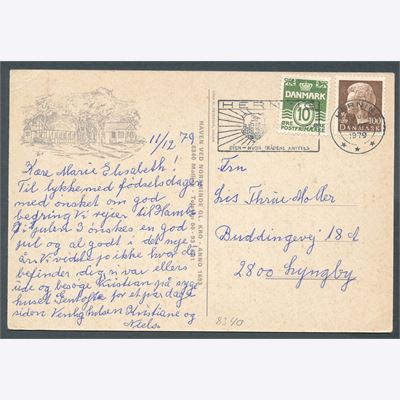 11/12 79
Kære Marie Elisabeth!
Til lykke med fødselsdagen
med ønsket om god
bedring Vi rejser til
Julen Ønskes en god
jul og al godt i det nye
år. Vi vidste jo ikke hvor du
befinder dig, vi var ellers
ude og besøge Kristian på syge
huset Gentofte for et par dage
siden Venlig hilsen Kristiane og
Niels
HAVEN VED NORSMINDE GL. KRO - ANNO 1693
8340 Malling
HERNING
DANMARK
10
ØRE
POSTFRIMÆRKE
BYEN - HVOR TRÅDENE KNYTTES
HERNING
1979
100
DANMARK
Fru
Lis Thrue Møller
Buddingevej 18 A
2800 Lyngby
8340